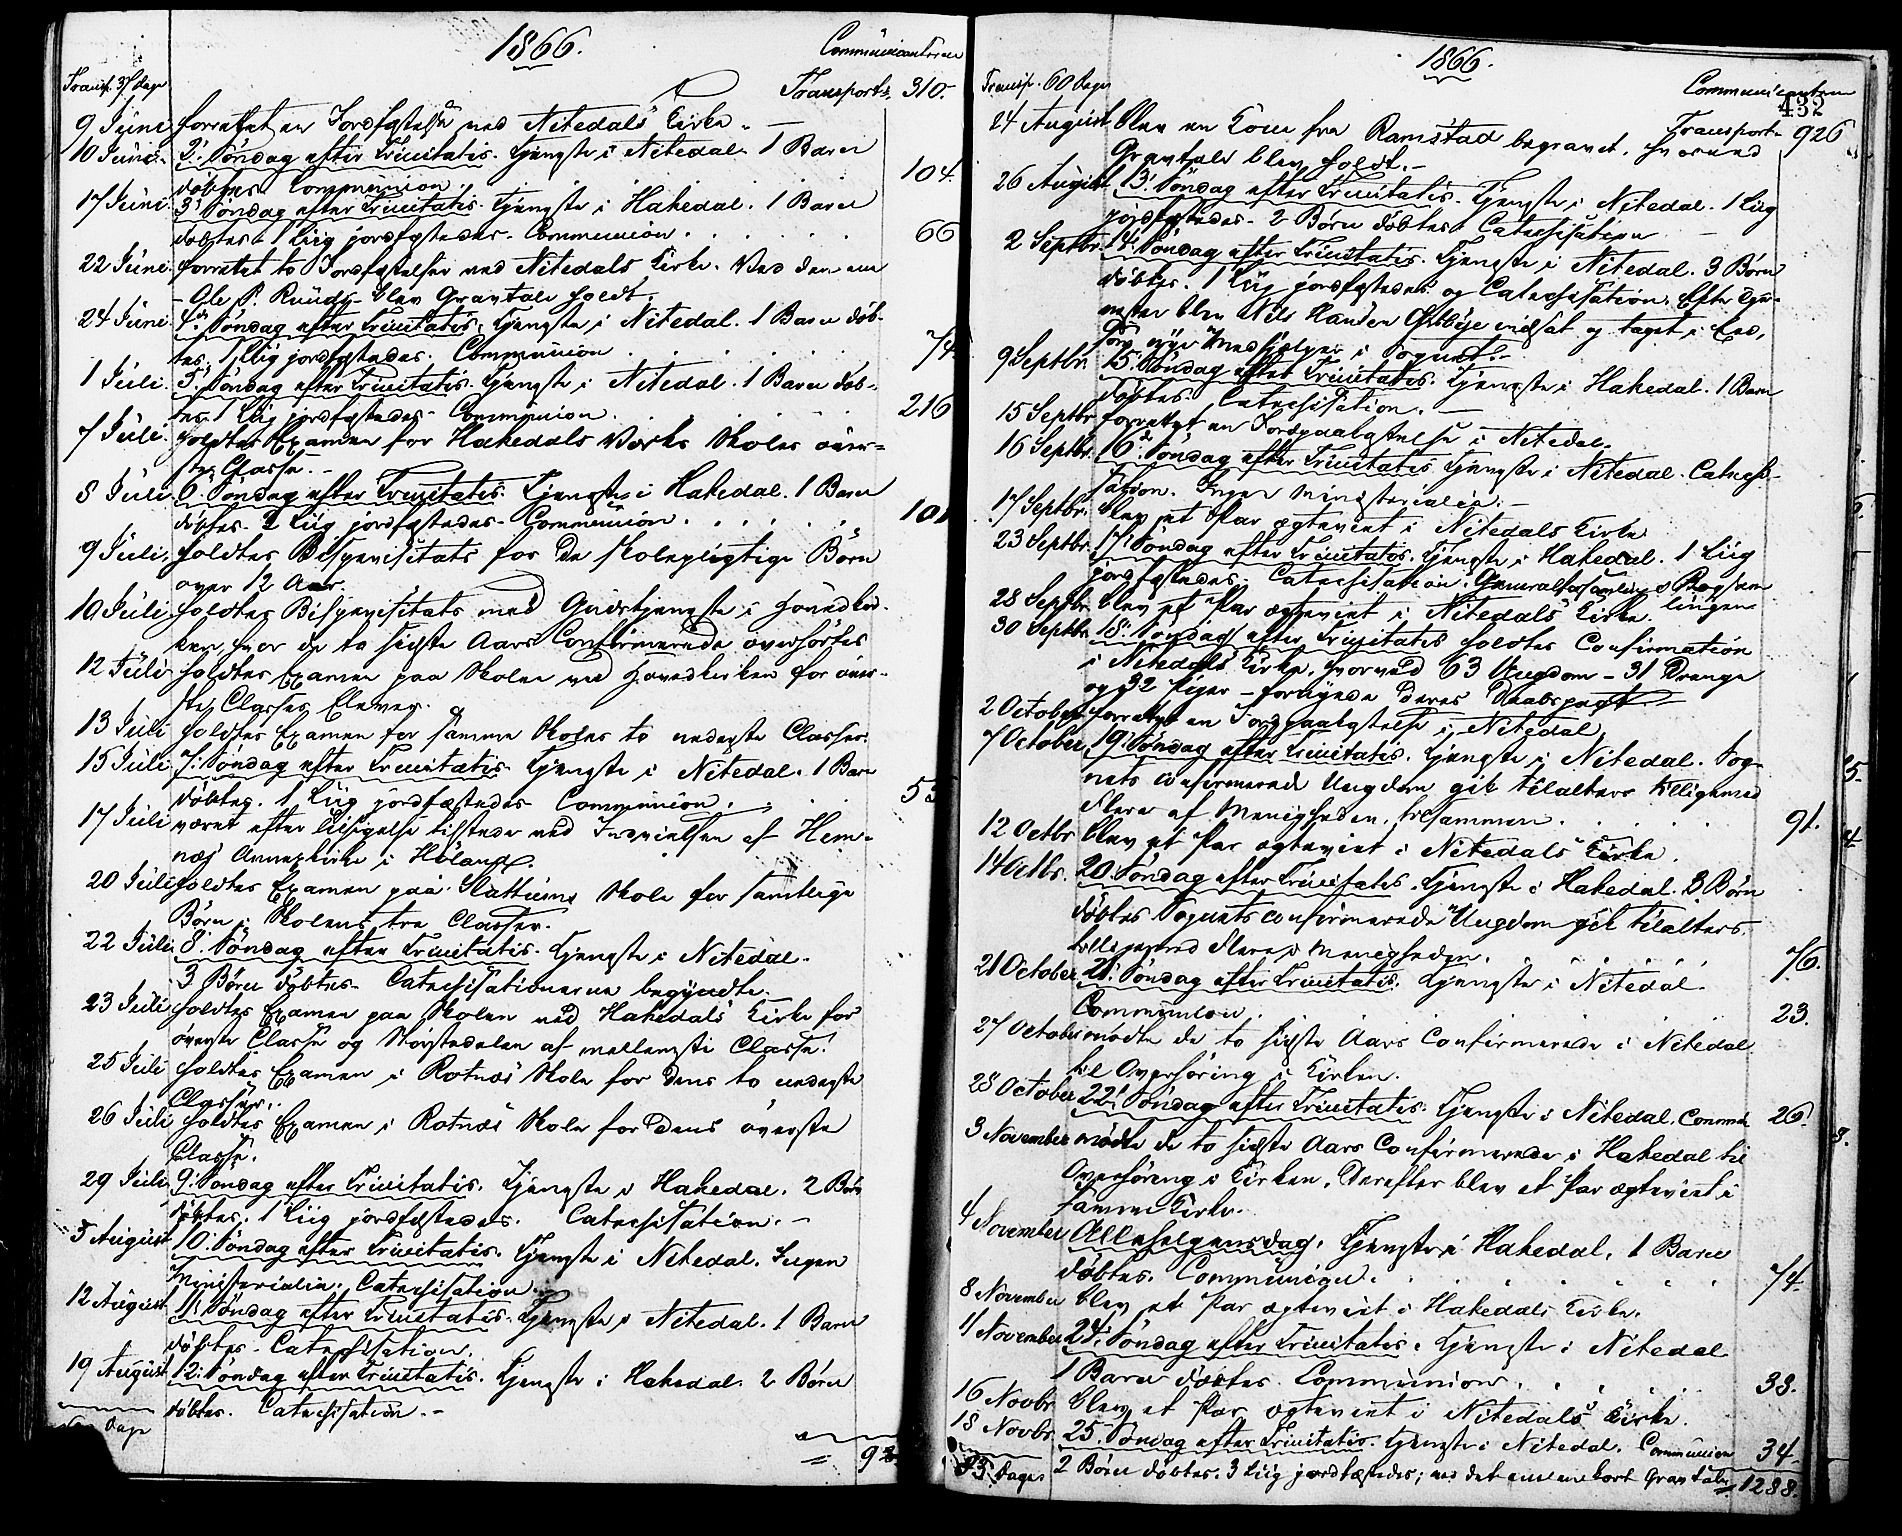 1866.
Communicanterne
Transp. 37 Dage
Transport 310.
9 Juni forrettet en Jordfæstelse ved Nitedals Kirke. –
10 Juni 2. Søndag efter Trinitatis. Tjeneste i Nitedal. 1 Barn
døbtes. Communion. 104.
17 Juni 3. Søndag efter Trinitatis. Tjeneste i Hakedal. 1 Barn
døbtes. 1 Liig jordfæstedes. Communion. 66
22 Juni forrettet to Jordfæstelser ved Nitedals Kirke. Ved den ene
– Ole P. Ruud – blev Gravtale holdt.
24 Juni 4. Søndag efter Trinitatis. Tjeneste i Nitedal. 1 Barn døb-
tes. 1 Liig jordfæstedes. Communion 74
1 Juli 5. Søndag efter Trinitatis. Tjeneste i Nitedal. 1 Barn døb-
tes. 1 Liig jordfæstedes. Communion. 216
7 Juli holdtes Examen for Hakedals Værks Skoles øver-
ste Classe. –
8 Juli 6. Søndag efter Trinitatis. Tjeneste i Hakedal. 1 Barn
døbtes. 2 Liig jordfæstedes. Communion. 101
9 Juli holdtes Bispevisitats for de skolepligtige Børn
over 12 Aar.
10 Juli holdtes Bispevisitats med Gudstjeneste i Hovedkir-
ken, hvor de to sidste Aars Confirmerede overhørtes
12 Juli holdtes Examen paa Skolen ved Hovedkirken for øver-
ste Classes Elever.
13 Juli holdtes Examen for samme Skoles to nederste Classer.
15 Juli 7. Søndag efter Trinitatis. Tjeneste i Nitedal. 1 Barn
døbtes. 1 Liig jordfæstedes. Communion.
17 Juli været efter Tilsigelse tilstede ved Indvielsen af Hem-
næs Annexkirke i Høland.
20 Juli holdtes Examen paa Slattums Skole for samtlige
Børn i Skolens tre Classer.
22 Juli 8. Søndag efter Trinitatis. Tjeneste i Nitedal.
3 Børn døbtes. Catechisationerne begyndte.
23 Juli holdtes Examen paa Skolen ved Hakedals Kirke for
øverste Classe og Størstedelen af mellemste Classe.
25 Juli holdtes Examen i Rotnæs Skole for dens to nederste
Classer.
26 Juli holdtes Examen i Rotnæs Skole for dens øverste
Classe.
29 Juli 9. Søndag efter Trinitatis. Tjeneste i Hakedal. 2 Børn
døbtes. 1 Liig jordfæstedes. Catechisation. –
5 August 10. Søndag efter Trinitatis. Tjeneste i Nitedal. Ingen
Ministerialia. Catechisation.
12 August 11. Søndag efter Trinitatis. Tjeneste i Nitedal. 1 Barn
døbtes. Catechisation.
19 August 12. Søndag efter Trinitatis. Tjeneste i Hakedal. 2 Børn
døbtes. Catechisation. –
Dage
1866.
Communicanterne
432
Transp. 60 Dage
Transport 926
24 August blev en Kone fra Ramstad begravet, hvorved
Gravtale blev holdt. –
26 August 13. Søndag efter Trinitatis. Tjeneste i Nitedal. 1 Liig
jordfæstedes. 2 Børn døbtes. Catechisation
2 Septbr. 14. Søndag efter Trinitatis. Tjeneste i Nitedal. 3 Børn
døbtes. 1 Liig jordfæstedes og Catechisation. Efter Tje-
nesten blev Nils Hansen indsat og taget i Ed,
som nye Medhjelper i Sognet. –
9 Septbr. 15. Søndag efter Trinitatis. Tjeneste i Hakedal. 1 Barn
døbtes. Catechisation. –
15 Septbr. forrettet en Jordpaakastelse i Nitedal.
16 Septbr. 16. Søndag efter Trinitatis. Tjeneste i Nitedal. Catechi-
sation. Ingen Ministerialia. –
17 Septbr. blev et Par ægteviet i Nitedals Kirke
23 Septbr. 17. Søndag efter Trinitatis. Tjeneste i Hakedal. 1 Liig
jordfæstedes. Catechisation. Generalforsamling i Bogsam-
lingen
28 Septbr. blev et Par ægteviet i Nitedals Kirke.
30 Septbr. 18. Søndag efter Trinitatis holdtes Confirmation
i Nitedals Kirke, hvorved 63 Ungdom – 31 Drenge
og 32 Piger – fornyede deres Daabspagt
2 October forrettet en Jordpaakastelse i Nitedal.
7 October 19. Søndag efter Trinitatis. Tjeneste i Nitedal. Sog-
nets confirmerede Ungdom gik tilalters tilligemed
Flere af Menigheden, tilsammen. 91.
12 Octbr. blev et Par ægteviet i Nitedals Kirke.
14 Octbr. 20. Søndag efter Trinitatis. Tjeneste i Hakedal. 3 Børn
døbtes. Sognets confirmerede Ungdom gik tilalters
tilligemed Flere i Menigheden. 76.
21 October 21. Søndag efter Trinitatis. Tjeneste i Nitedal.
Communion. 23.
27 October mødte de to sidste Aars Confirmerede i Nitedal
til Overhøring i Kirken.
28 October 22. Søndag efter Trinitatis. Tjeneste i Nitedal. Commu. 26.
3 November mødte de to sidste Aars Confirmerede i Hakedal til
Overhøring i Kirken. Derefter blev et Par ægteviet i
samme Kirke.
4 November Allehelgensdag. Tjeneste i Hakedal. 1 Barn
døbtes. Communion. 74.
8 November blev et Par ægteviet i Hakedals Kirke.
11 November 24. Søndag efter Trinitatis. Tjeneste i Nitedal
1 Barn døbtes. Communion. 38.
16 Novbr. blev et Par ægteviet i Nitedals Kirke.
18 Novbr. 25. Søndag efter Trinitatis. Tjeneste i Nitedal. Communion 34.
83 Dage 2 Børn døbtes. 3 Liig jordfæstedes; ved det ene en kort Gravtale. 1288.